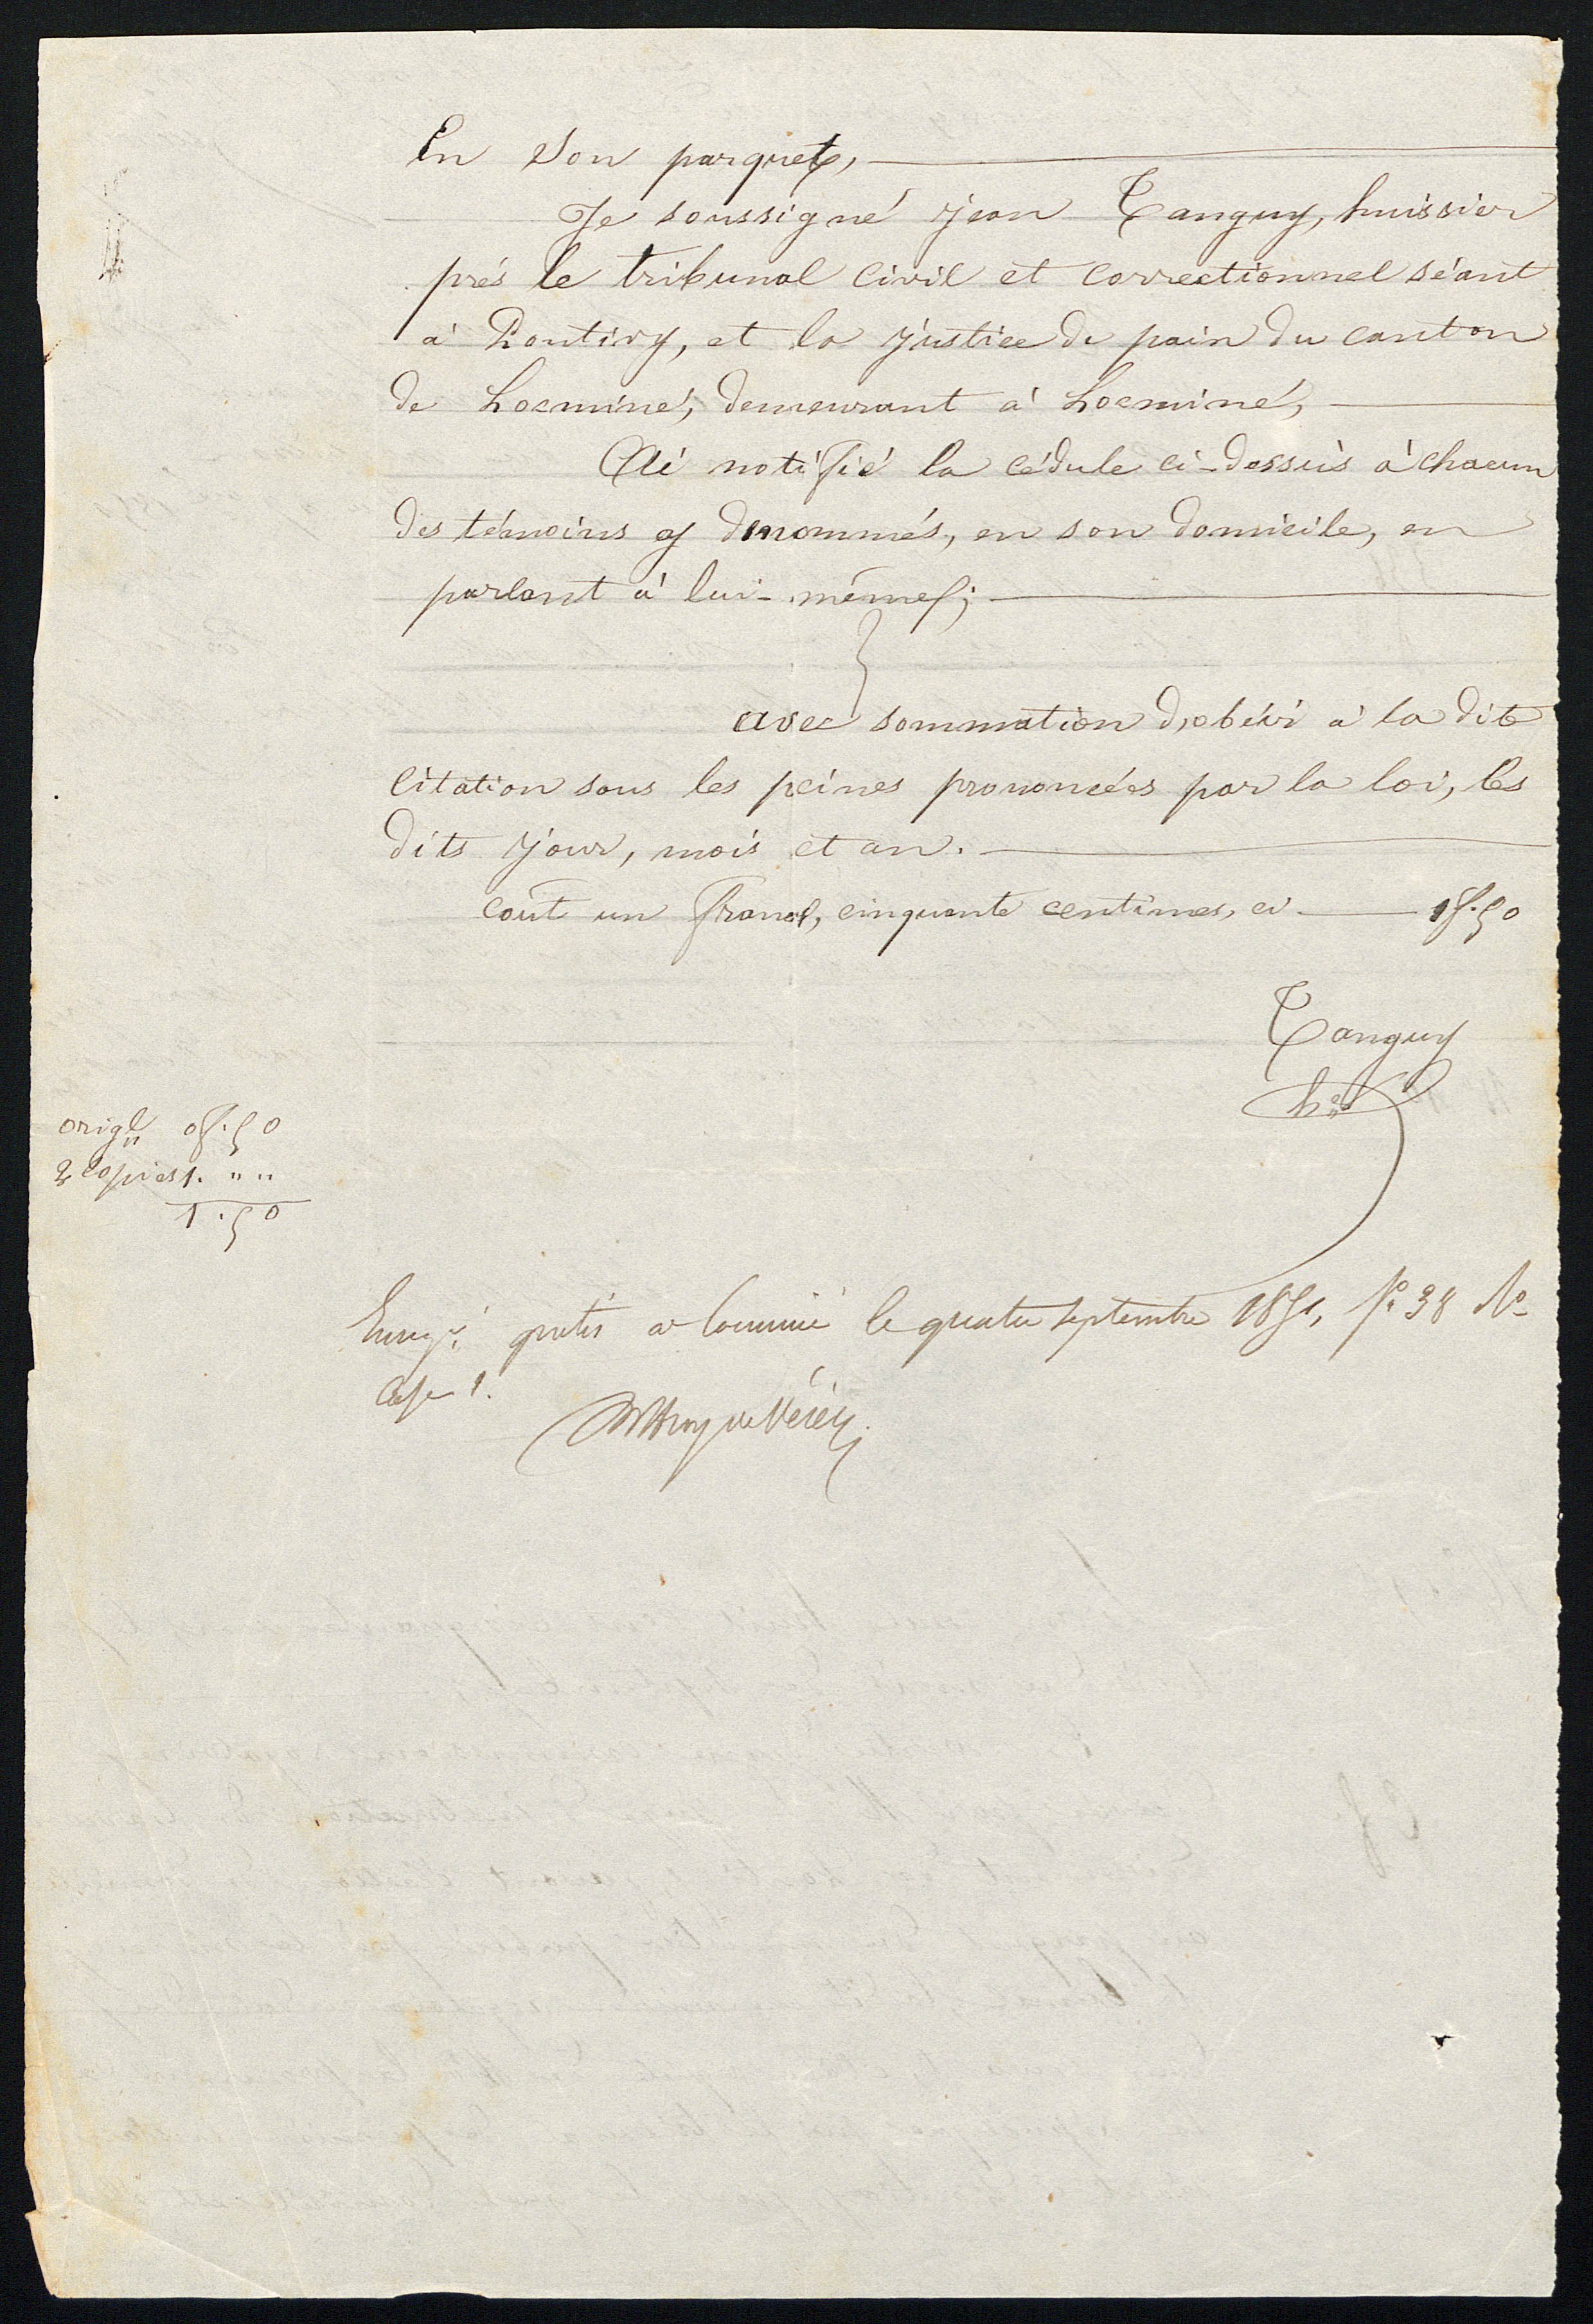 En son parquet,
Je soussigné jean Tanguy, huissier
prés le tribunal civil et correctionnel séant
à Pontivy, et la justice de paix du canton
de Locminé, demeurant à Locminé,
Ai notifié la cédule ci-dessus à chacun
des témoins y dénommés, en son domicile, en
parlant à lui-même;
avec sommation d'obéir à la dite
citation sous les peines prononcées par la loi, les
dits jour, mois et an.
coût un franc, cinquante centimes, ci 1f.50
Tanguy
her
origl 0f.50
2 copies 1. " "
1.50
Enregé gratis a Locminé le quatre septembre 1851, fo 38 Vo
Case 1.